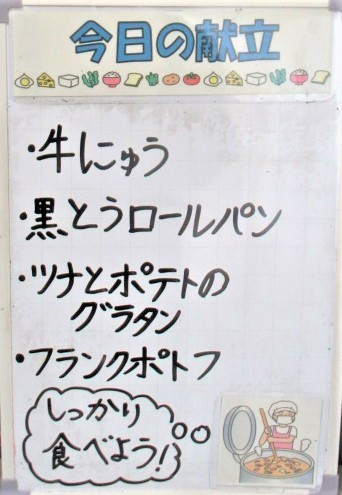 今日の献立
・牛にゅう
・黒とうロールパン
・ツナとポテトの
グラタン
・フランクポトフ
しっかり
食べよう!